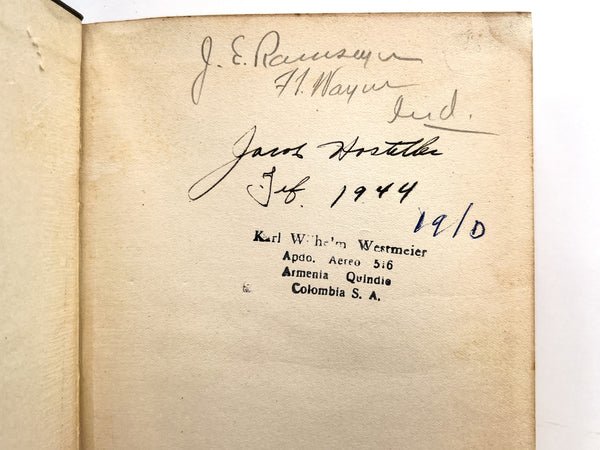 J. E. Ramseyer
Ft. Wayne
Ind.
Jacob Hostetler
Feb. 1944
19/D
Karl Wilhelm Westmeier
Apdo. Aereo 516
Armenia Quindio
Colombia S. A.